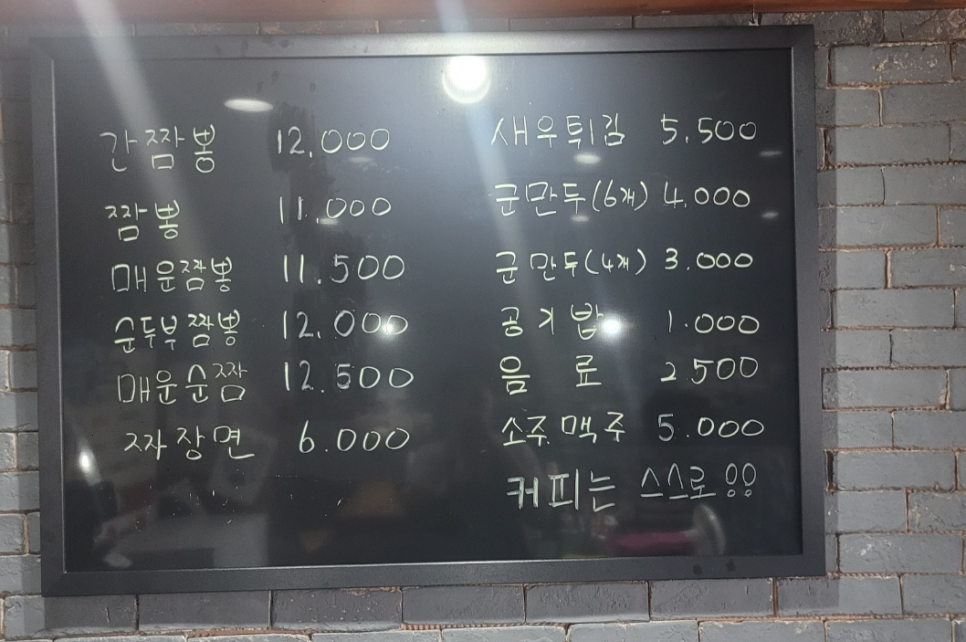 간짬뽕 12,000
짬뽕 11.000
매운짬뽕 11.500
순두부짬뽕 12.000
매운순짬 12.500
짜장면 6.000
새우튀김 5.500
군만두(6개) 4.000
군만두(4개) 3.000
공기밥 1.000
음료 2.500
소주.맥주 5.000
커피는 스스로!!